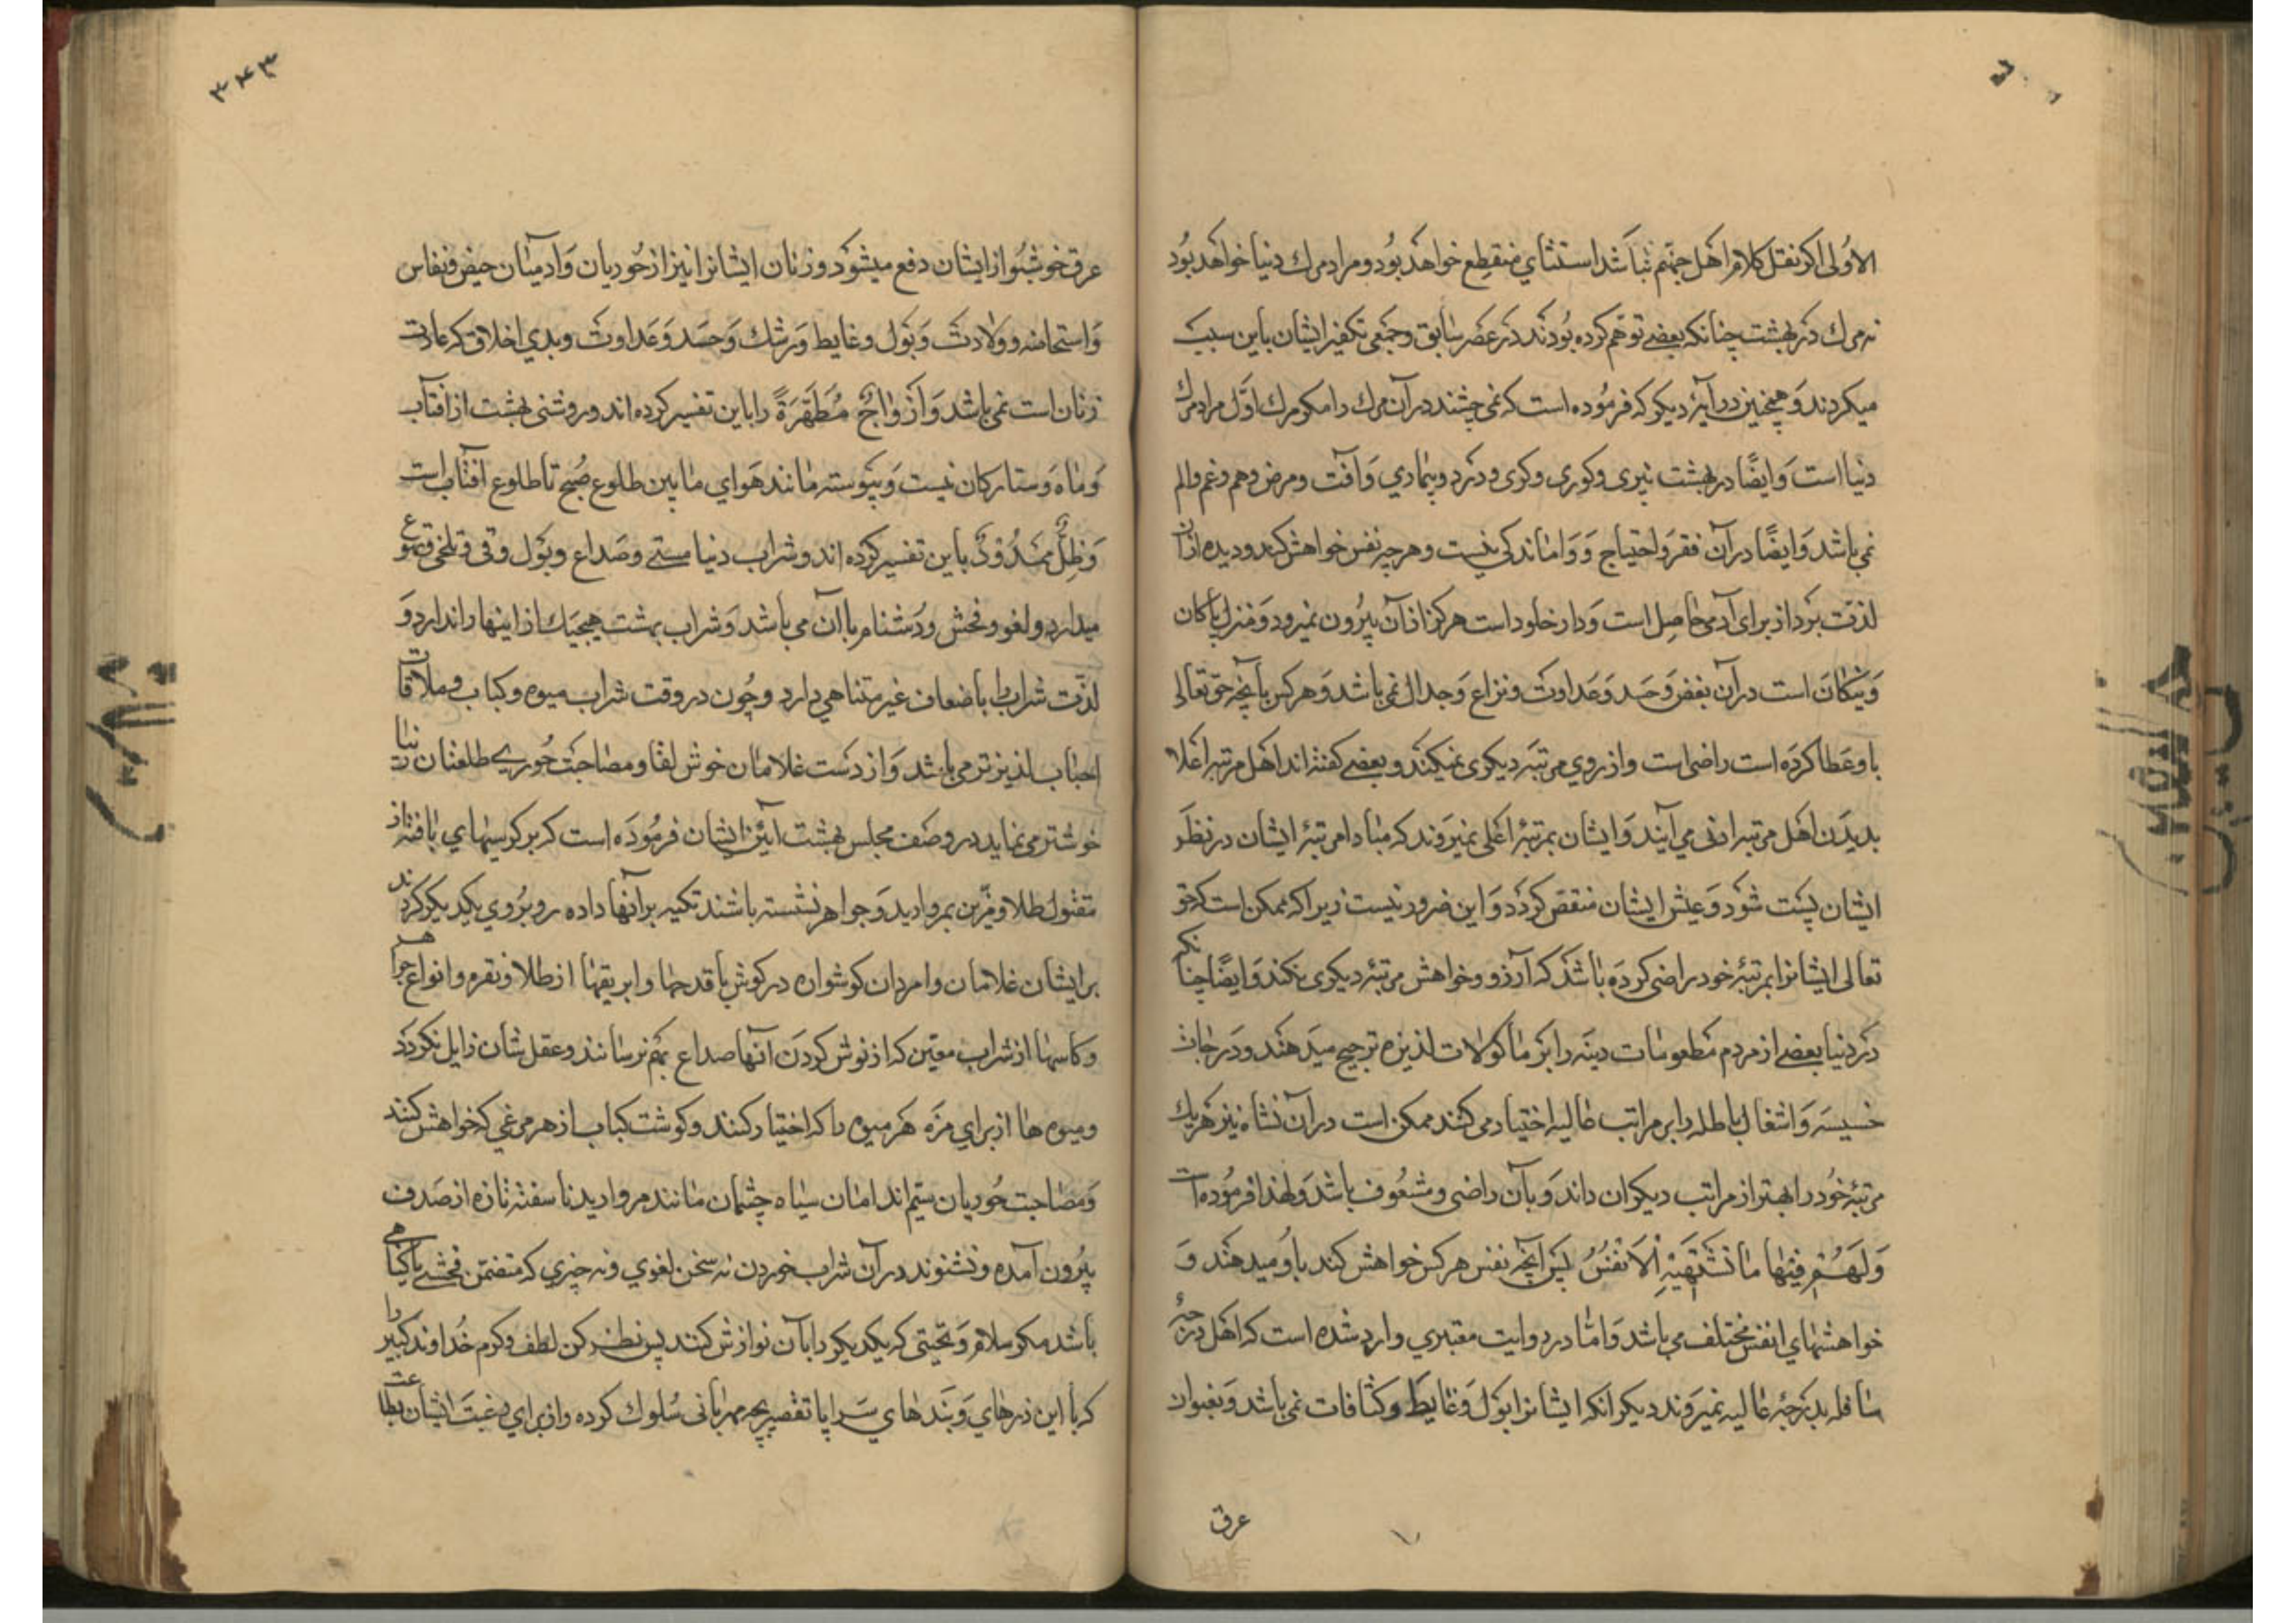 الاولی اکر نقل کلام اهل جهنم نباشد استثنای منقطع خواهد بود و مراد مرك دنیا خواهد بود
نه مرك در بهشت چنانکه بعضی توهم کرده بودند در عصر سابق و جمعی تکفیر ایشان باین سبب
میکردند و همچنین در آیهٔ دیکر که فرموده است که نمی چشند در آن مرك را مکر مرك اول مراد مرك
دنیا است وَایضًا در بهشت پیری و کوری و کری و درد و بیماری وَ آفت و مرض و هم و غم و الم
نمی باشد وَایضًا در آن فقر وَ احتیاج وَ واماندکی نیست و هر چه نفس خواهش کند و دیده ازان
لذت برد از برای آدمی حاصل است وَ دار خلود است هرکز از آن بیرون نمیرود وَ منزل پاکان
وَ نیکان است در آن بغض وَ حسد وَ عداوت و نزاع وَ جدال نمی باشد وَ هر کس بآنچه حق تعالی
باو عطا کرده است راضی است و ازروی مرتبه دیکری نمیکند و بعضی کفته اند اهل مرتبه اعلا
بدیدن اهل مرتبه ادنی می آیند وَ ایشان بمرتبهٔ اعلی نمیروند که مبادا مرتبهٔ ایشان در نظر
ایشان پست شود وَ عیش ایشان منقص کردد وَ این ضرور نیست زیرا که ممکن است که حق
تعالی ایشانرا بمرتبهٔ خود راضی کرده باشد که آرزو و خواهش مرتبهٔ دیکری نکند وَایضًا چنانکه
در دنیا بعضی از مردم مطعومات دینه را بر ماکولات لذیزه ترجیح میدهند و درجات
خسیسه وَ اشغال باطله را بر مراتب عالیه اختیار می کنند ممکن است در آن نشاه نیز هریك
مرتبهٔ خود را بهتر از مراتب دیکران داند وَ بآن راضی و مشعوف باشد وَ لهذا فرموده است
وَلَهُم فیها ما تَشتَهیهِ الاَنفُسُ پس آنچه نفس هر کس خواهش کند باو میدهند وَ
خواهشهای انفس مختلف می باشد وَ امّا در روایت معتبری وارد شده است که اهل درجهٔ
سافله بدرجهٔ عالیه نمیروند دیکر انکه ایشانرا بول وَ غایط و کثافات نمی باشد وَ بغیر از
عرق
۳۴۳
عرق خوشبو از ایشان دفع میشود و زنان ایشانرا نیز از حوریان وَ ادمیان حیض و نفاس
وَ استحاضه و ولادت وَ بول و غایط وَ رشك وَ حسد وَ عداوت و بدی اخلاق که عادت
زنان است نمی باشد وَ اَزواجٌ مُطَهَّرَةً را باین تفسیر کرده اند و روشنی بهشت از افتاب
وَ ماه وَ ستارکان نیست وَ پیوسته مانند هوای مابین طلوع صبح تا طلوع افتاب است
وَ ظِلٍّ مَمدُودٍ باین تفسیر کرده اند و شراب دنیا مستی و صداع و بول و قی و تلخی و
میدارد و لغو و فحش و دشنام با آن می باشد وَ شراب بهشت هیچیك از اینها را ندارد وَ
لذّت شراب را باضعاف غیر متناهی دارد و چون در وقت شراب میوه و کباب و ملاقات
احباب لذیزتر می باشد وَ از دست غلامان خوش لقا و مصاحبت حوری طلعتان زیبا
خوشتر می نماید در وصف مجلس بهشت آئین ایشان فرموده است که بر کرسیهای بافته از
مقتول طلا و مزّین بمروارید وَ جواهر نشسته باشند تکیه بر آنها داده رو بروی یکدیکر کردند
بر ایشان غلامان و امردان کوشواره در کوش با قدحها و ابریقها از طلا و نقره و انواع جواهر
و کاسها از شراب معین که از نوش کردن آنها صداع بهم نرسانند و عقل شان زایل نکردد
و میوه ها از برای مزّه هر میوه را که اختیار کنند و کوشت کباب از هر مرغی که خواهش کنند
وَ مصاحبت حوریان سیم اندامان سیاه چشمان مانند مروارید ناسفته تازه از صدف
بیرون آمده و نشنوند در آن شراب خوردن نه سخن لغوی و نه چیزی که متضمّن فحشی یا کناهی
باشد مکر سلام وَ تحیتی که یکدیکر را بآن نوازش کنند پس نظر کن لطف و کرم خداوند کبیر را
که با این ذرهای وَ بندهای سراپا تقصیر بچه مهربانی سلوك کرده و از برای رغبت ایشان بطاعت